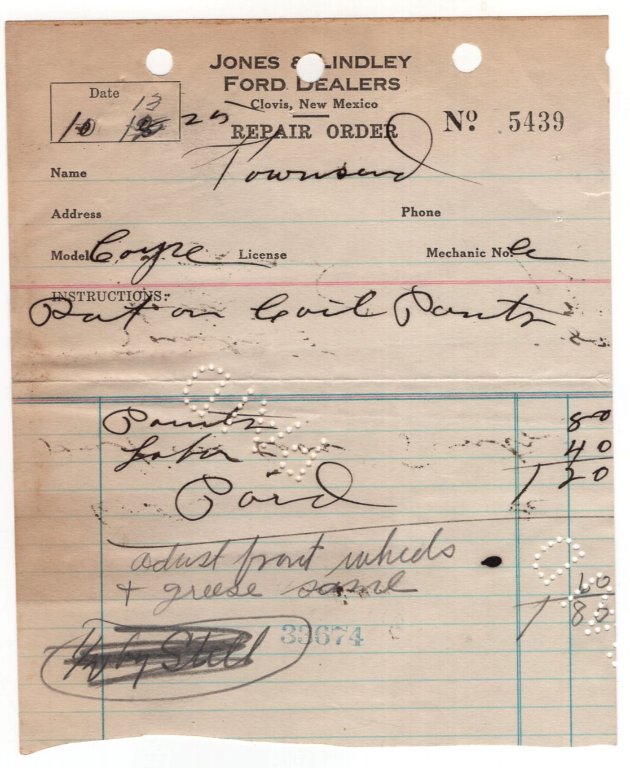 JONES & LINDLEY
FORD DEALERS
Clovis, New Mexico
REPAIR ORDER
Nº 5439
Date 13
10 25
Name Townsend
Address Phone
Model Coype License Mechanic No.
INSTRUCTIONS:
Put on Coil Points
Points 80
Labor 40
1 20
Paid
adust front wheels
+ greese same 60
1 80
33674